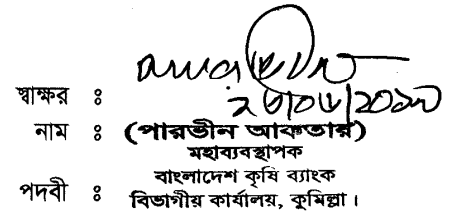 স্বাক্ষর :
নাম : (পারভীন আকতার)
মহাব্যবস্থাপক
বাংলাদেশ কৃষি ব্যাংক
পদবী : বিভাগীয় কার্যালয়, কুমিল্লা।